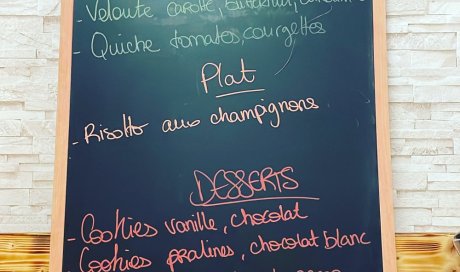 - Velouté carotte,
- Quiche tomates, courgettes
Plat
- Risotto aux champignons
DESSERTS
- Cookies vanille, chocolat
- Cookies pralines, chocolat blanc